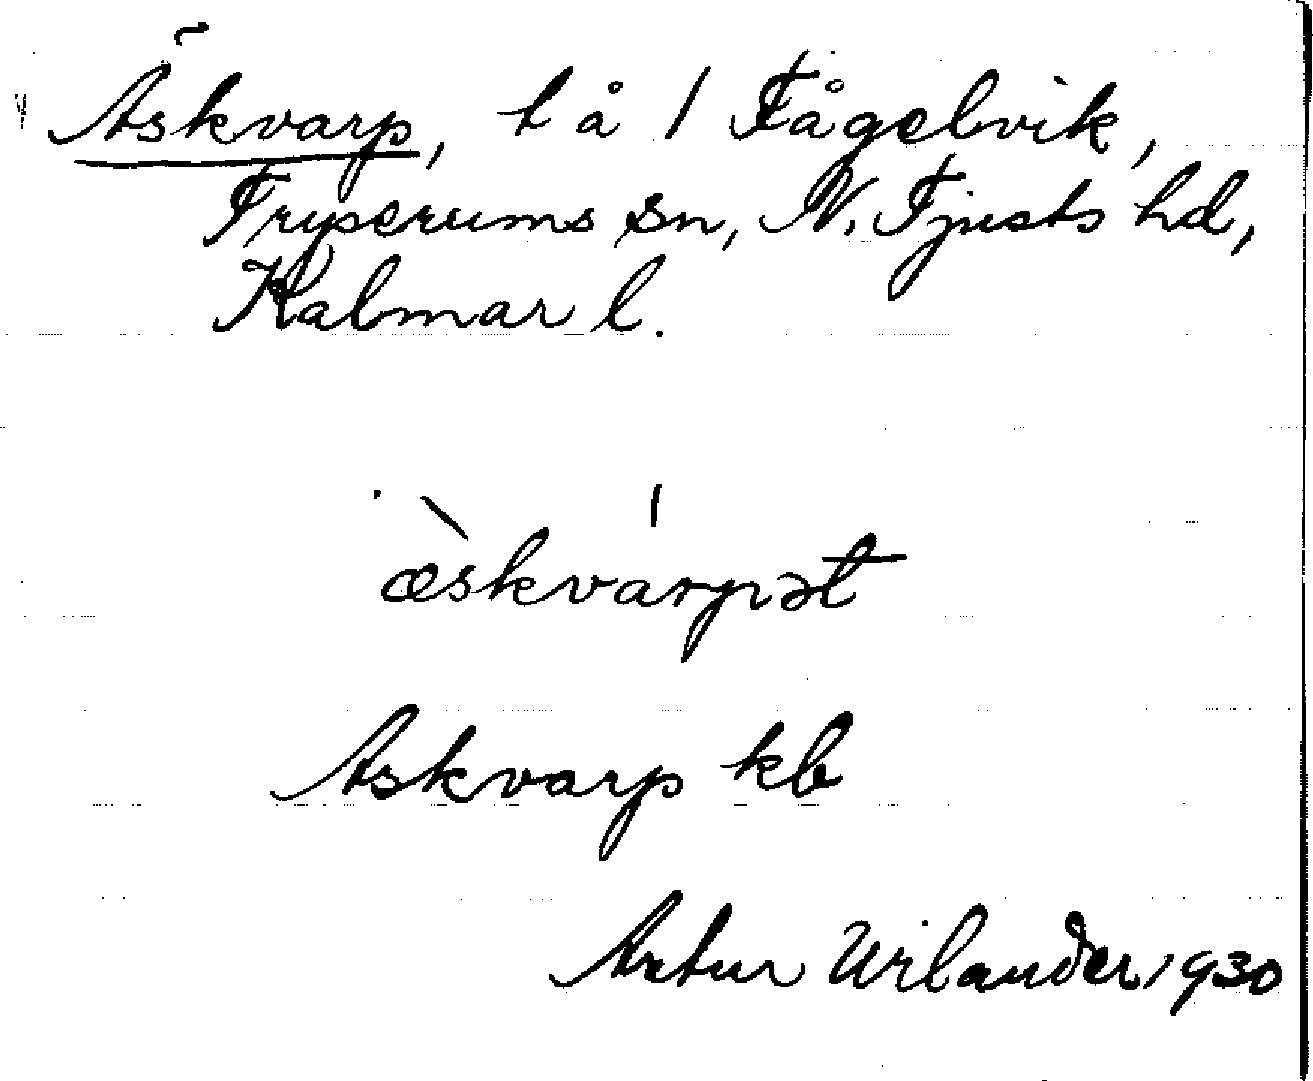 Äskvarp, t å / Fågelvik,
Tryserums sn, N. Tjusts hd,
Kalmar l.
æ̀skvárpət
Askvarp kb
Artur Wilander 1930